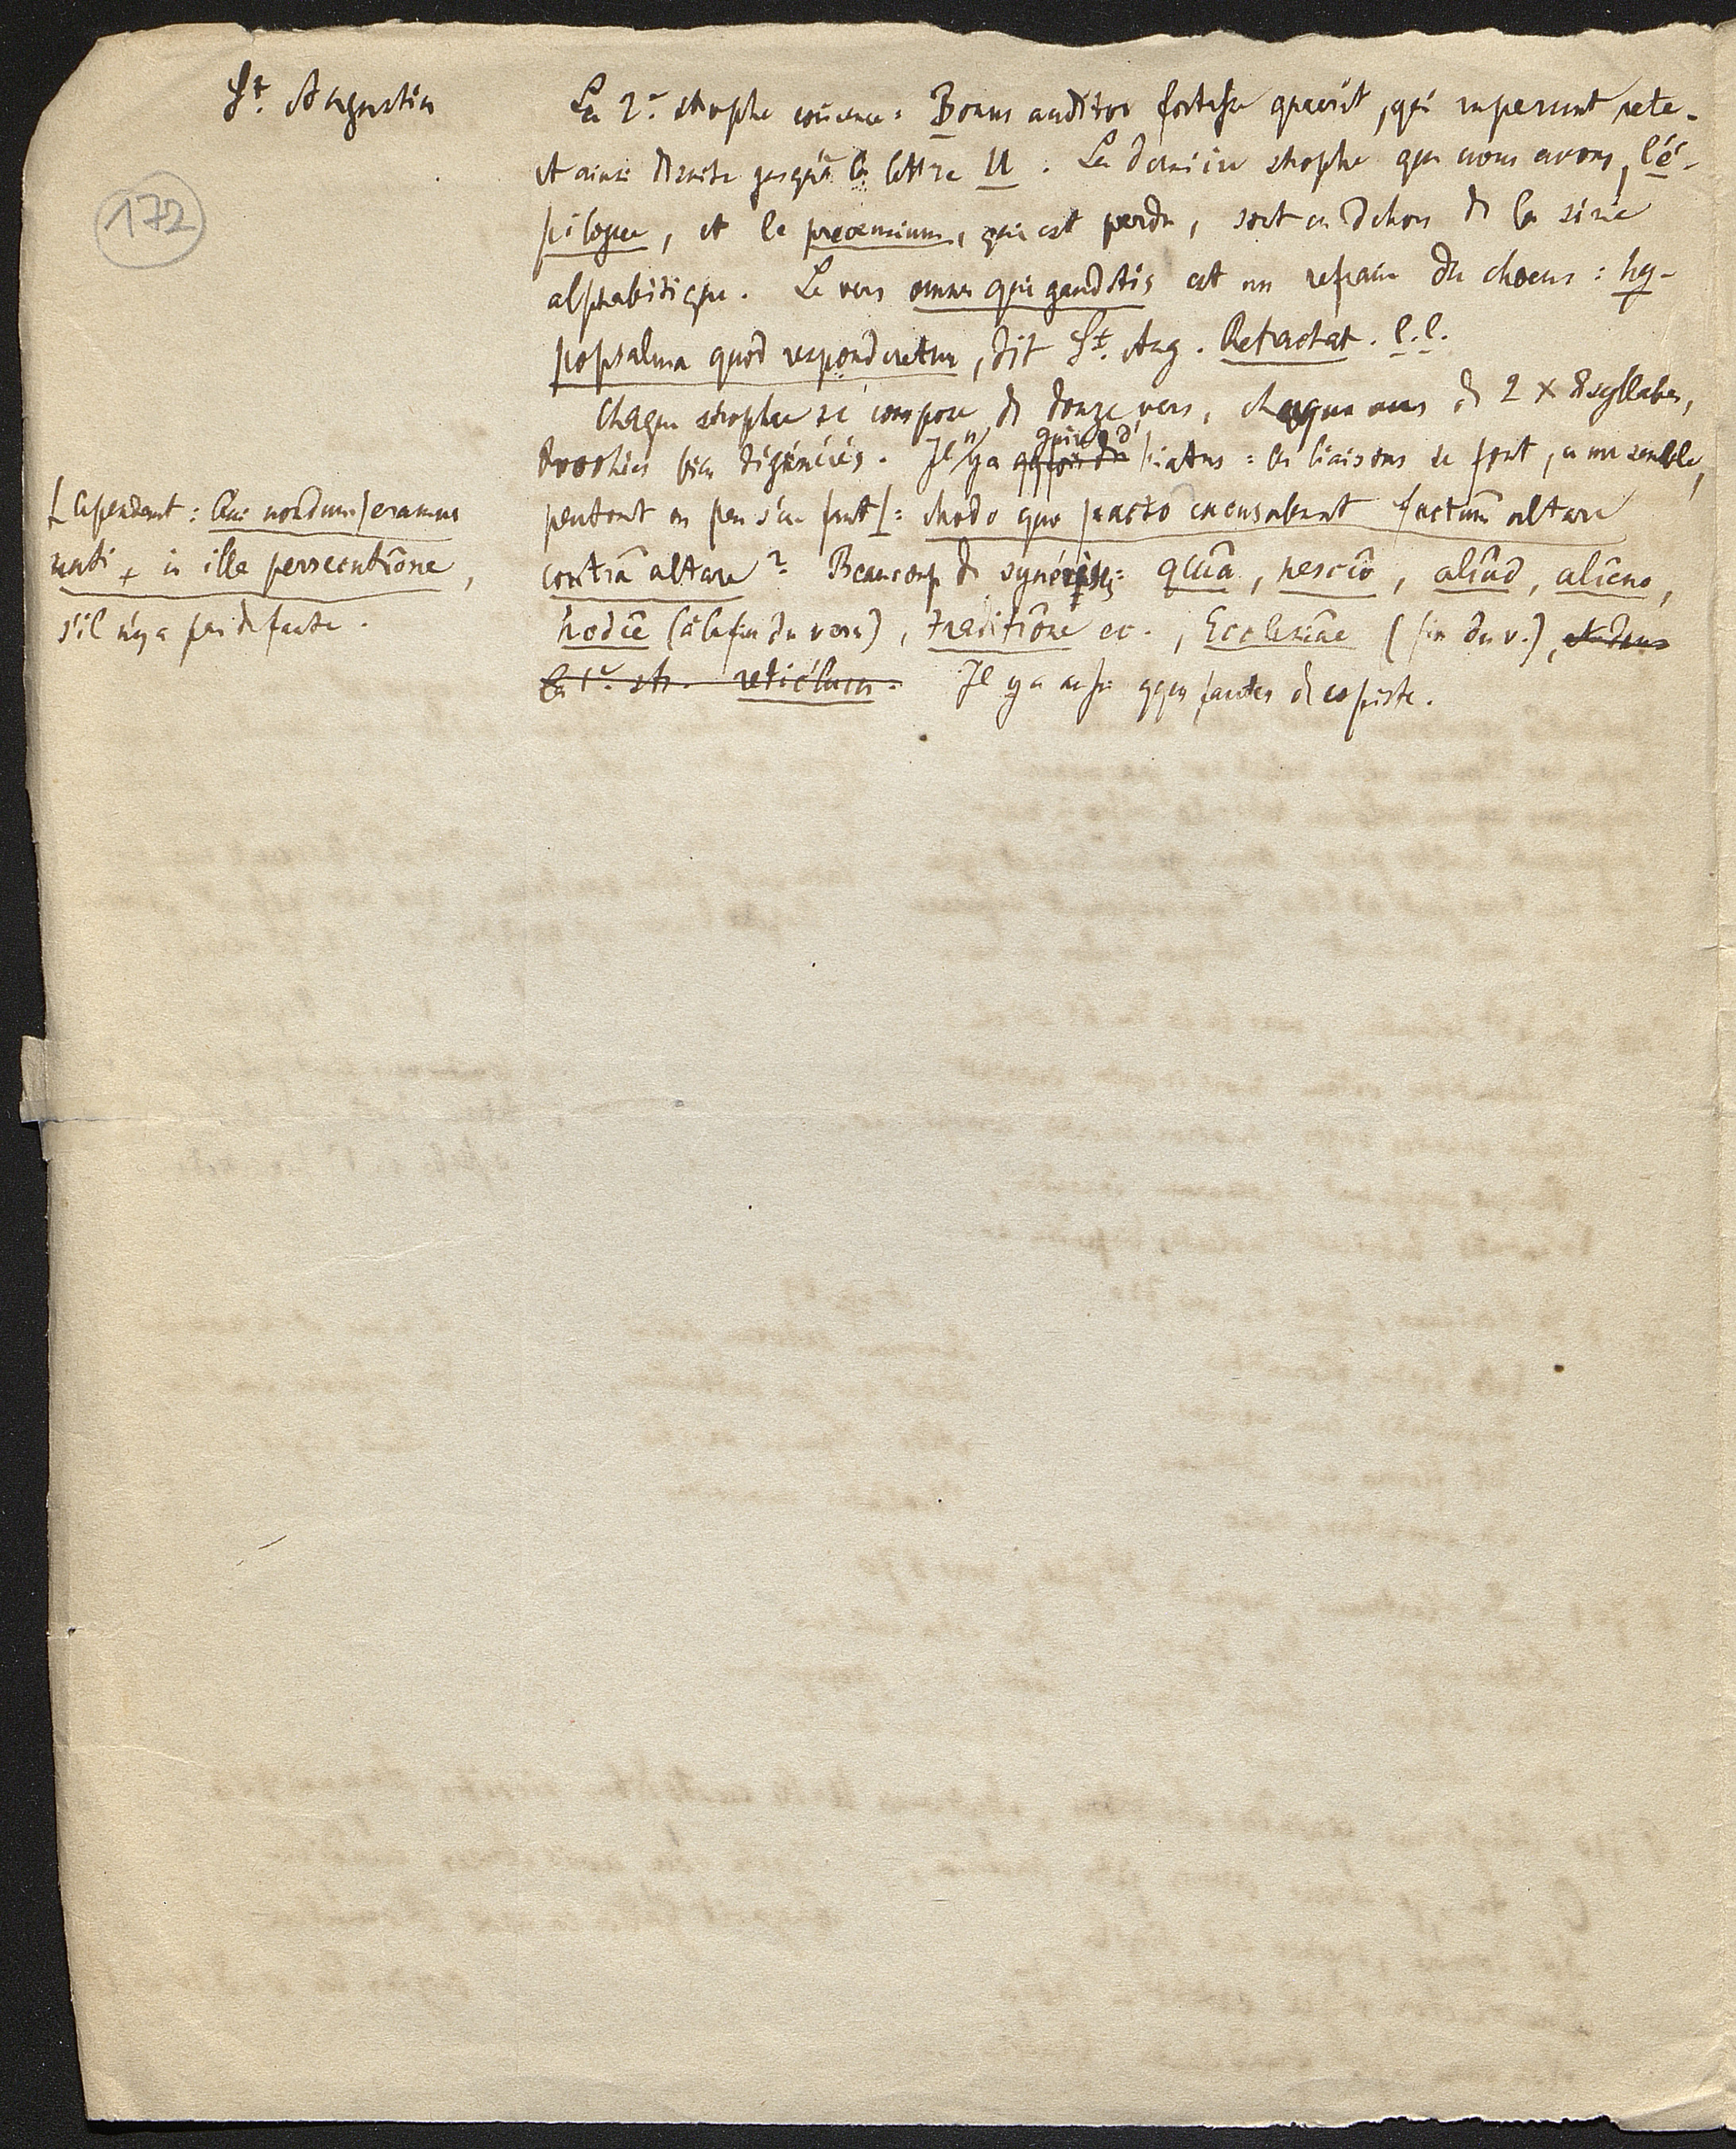 St. Augustin
172
La 2e. strophe coḿence: Bonus auditor fortasse quaerit, qui ruperunt rete.
et ainsi de suite jusqu'à la lettre U. La dernière strophe que nous avons, l'é-
pilogue, et le prooemium, qui est perdu, sont en dehors de la série
alphabétique. Le vers omnes qui gaudetis est un refrain du choeur: hy-
popsalma quod responderetur, dit St. Aug. Retractat. l.l.
Chaque strophe se compose de douze vers, chaque vers de 2 x 8 syllabes,
trochées bien dégénérés. Il n'y a qqfois du guère d' hiatus: les liaisons se font, ce me semble,
peutont en peu s'en faut [: Modo quo pacto excusabunt factum altare
contra altare? Beaucoup de synérèses: quia, nescio, aliud, alieno,
hodie (à la fin du vers), traditione ec., Ecclesiae (fin du v.), et dans
la 1e. str. reticulum. Il y a aussi qques fautes de copiste.
[ Cependant: Qui nondum eramus
nati + in illa persecutione,
s'il n'y a pas de faute.